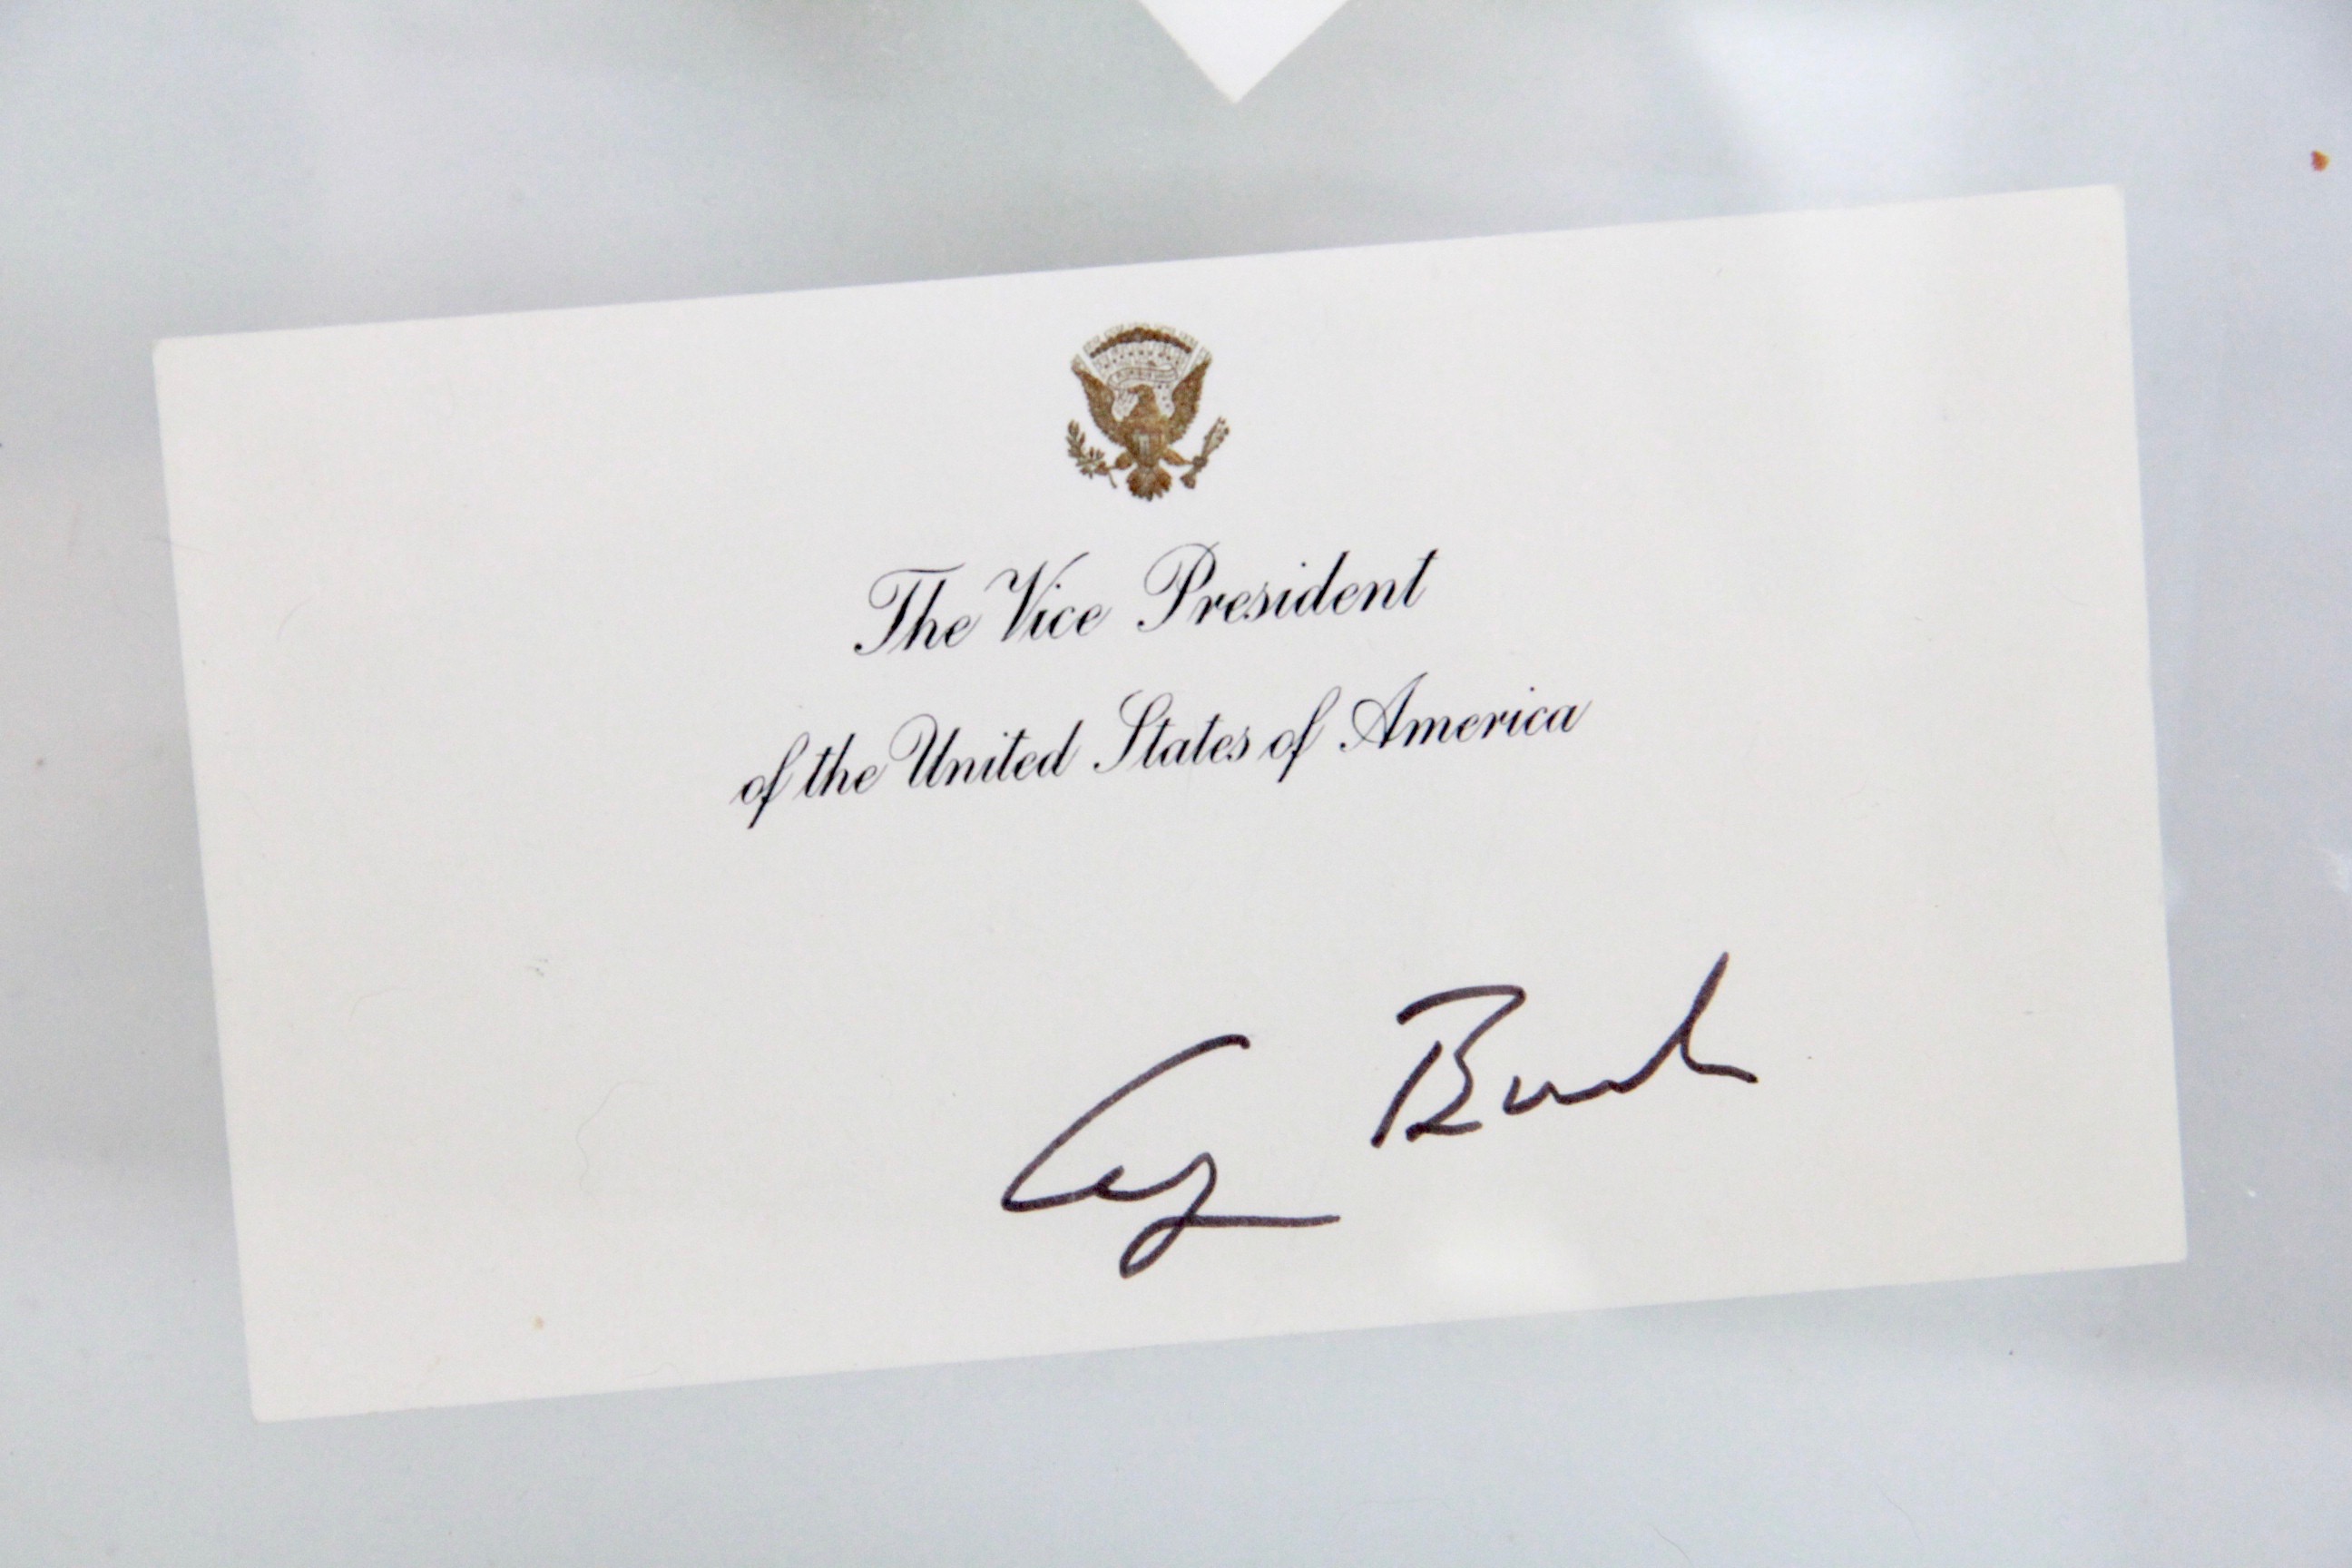 The Vice President
of the United States of America
Bush